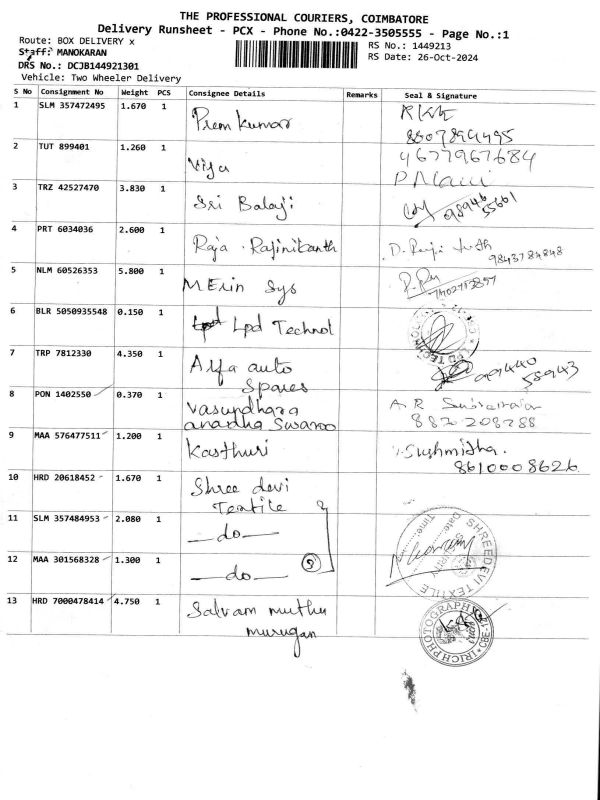 THE PROFESSIONAL COURIERS, COIMBATORE
Delivery Runsheet - PCX - Phone No.:0422-3505555 - Page No.:1
Route: BOX DELIVERY x
RS No.: 1449213
Staff: MANOKARAN
RS Date: 26-Oct-2024
DRS No.: DCJB144921301
Vehicle: Two Wheeler Delivery
S No Consignment No Weight PCS Consignee Details Remarks Seal & Signature
1 SLM 357472495 1.670 1 Prem kumar
2 TUT 899401 1.260 1 Vija 4677967684
3 TRZ 42527470 3.830 1 Sri Balaji 98946
55661
4 PRT 6034036 2.600 1 Raja . Rajinikanth
9843784848
5 NLM 60526353 5.800 1 MErin Sys
6 BLR 5050935548 0.150 1 Lpd Technol
7 TRP 7812330 4.350 1 Alfa auto
Spares
8 PON 1402550 0.370 1 Vasundhara
anandha Swaroo
882 208288
9 MAA 576477511 1.200 1 Kasthuri Sushmitha.
8610008626
10 HRD 20618452 1.670 1 Shree devi
Textile
11 SLM 357484953 2.080 1 —do—
12 MAA 301568328 1.300 1 —do— 3
SHREEDEVI TEXTILE
Date:
Time:
13 HRD 7000478414 4.750 1 Salvam muthu
murugan